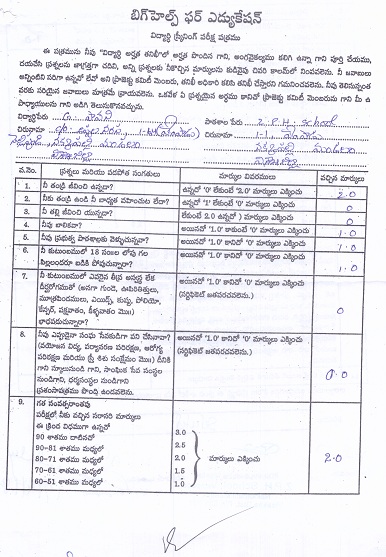 బిగ్‌హెల్ప్ ఫర్ ఎడ్యుకేషన్
విద్యార్థి స్క్రీనింగ్ పరీక్ష పత్రము
ఈ పత్రమును నీవు "విద్యార్థి తనిఖీ"లో అర్హత పొందిన గాని, అంగవైకల్యము కలిగి ఉన్నా గాని పూర్తి చేయుము,
దయచేసి ప్రశ్నలను జాగ్రత్తగా చదివి, అన్ని ప్రశ్నలకు నీకొచ్చిన మార్కులను కుడివైపు చివరి కాలమ్‌లో నింపవలెను. నీ జవాబులు
అన్నింటిని సరిగా ఉన్నవో లేదో అని ప్రాజెక్టు కమిటీ మెంబరు, తనిఖీ అధికారి కలిసి తనిఖీ చేస్తారని గమనించవలెను. నీవు తెలిసినంత
వరకు సరియైన జవాబులు మాత్రమే వ్రాయవలెను. ఒకవేళ ఏ ప్రశ్నయైన అర్థము కానిచో ప్రాజెక్టు కమిటీ మెంబరును గాని మీ ఉ
పాధ్యాయులను గాని అడిగి తెలుసుకొనవచ్చును.
విద్యార్థిపేరు G. పావని పాఠశాల పేరు Z.P.H. School
చిరునామా చిరునామా
వ.నెం. ప్రశ్నలు మరియు పరపోశిత సంగతులు మార్కుల వివరములు వచ్చిన మార్కులు
1. నీ తండ్రి జీవించి ఉన్నాడా? ఉన్నచో '0' లేకుంటే '2.0' మార్కులు ఎక్కించు 2.0
2. నీకు తండ్రి ఉండి నీ బాధ్యత వహించుట లేదా? ఉన్నచో '1' లేకుంటే '0' మార్కులు ఎక్కించు 0
3. నీ తల్లి జీవించి యున్నదా? లేకుంటే 2.0 ఉన్నచో 0 మార్కులు ఎక్కించు 0
4. నీవు బాలికవా? అయినచో '1.0' కాకుంటే '0' మార్కులు ఎక్కించు 1.0
5. నీవు ప్రభుత్వ పాఠశాలకు వెళ్ళుచున్నావా? అయినచో '1.0' కానిచో '0' మార్కులు ఎక్కించు 1.0
6. నీ కుటుంబములో 18 సం॥ల లోపు గల
పిల్లలందరూ బడికి పోవుచున్నారా? అయినచో '1.0' కానిచో '0' మార్కులు ఎక్కించు 1.0
7. నీ కుటుంబములో ఎవరైన తీవ్ర అస్వస్థ లేక
దీర్ఘరోగముతో (అనగా గుండె, ఊపిరితిత్తులు,
మూత్రపిండములు, ఎయిడ్స్, కుష్టు, పోలియో,
కేన్సర్, పక్షవాతం, కీళ్ళవాతం మొ॥)
బాధపడుచున్నారా? అయినచో '1.0' కానిచో '0' మార్కులు ఎక్కించు
(సర్టిఫికెట్ జతపరచవలెను.) 0
8. నీవు ఎప్పుడైనా సంఘ సేవకుడిగా పని చేసినావా?
(వయోజన విద్య, పర్యావరణ పరిరక్షణ, ఆరోగ్య
పరిరక్షణ మరియు స్త్రీ శిశు సంక్షేమం మొ॥) దీనికి
గాని స్కూలునుండి గాని, సాంఘిక సేవ సంస్థల
నుండిగాని, ధర్మసంస్థల నుండిగాని
ప్రశంసాపత్రము పొంది ఉండవలెను. అయినచో '1.0' కానిచో '0' మార్కులు ఎక్కించు
(సర్టిఫికెట్ జతపరచవలెను.) 0.0
9. గత సంవత్సరాంతపు
పరీక్షల్లో నీకు వచ్చిన సరాసరి మార్కులు
ఈ క్రింది విధముగా ఉన్నచో
90 శాతము దాటినచో 3.0
90-81 శాతము మధ్యలో 2.5
80-71 శాతము మధ్యలో 2.0 మార్కులు ఎక్కించు 2.0
70-61 శాతము మధ్యలో 1.5
60-51 శాతము మధ్యలో 1.0